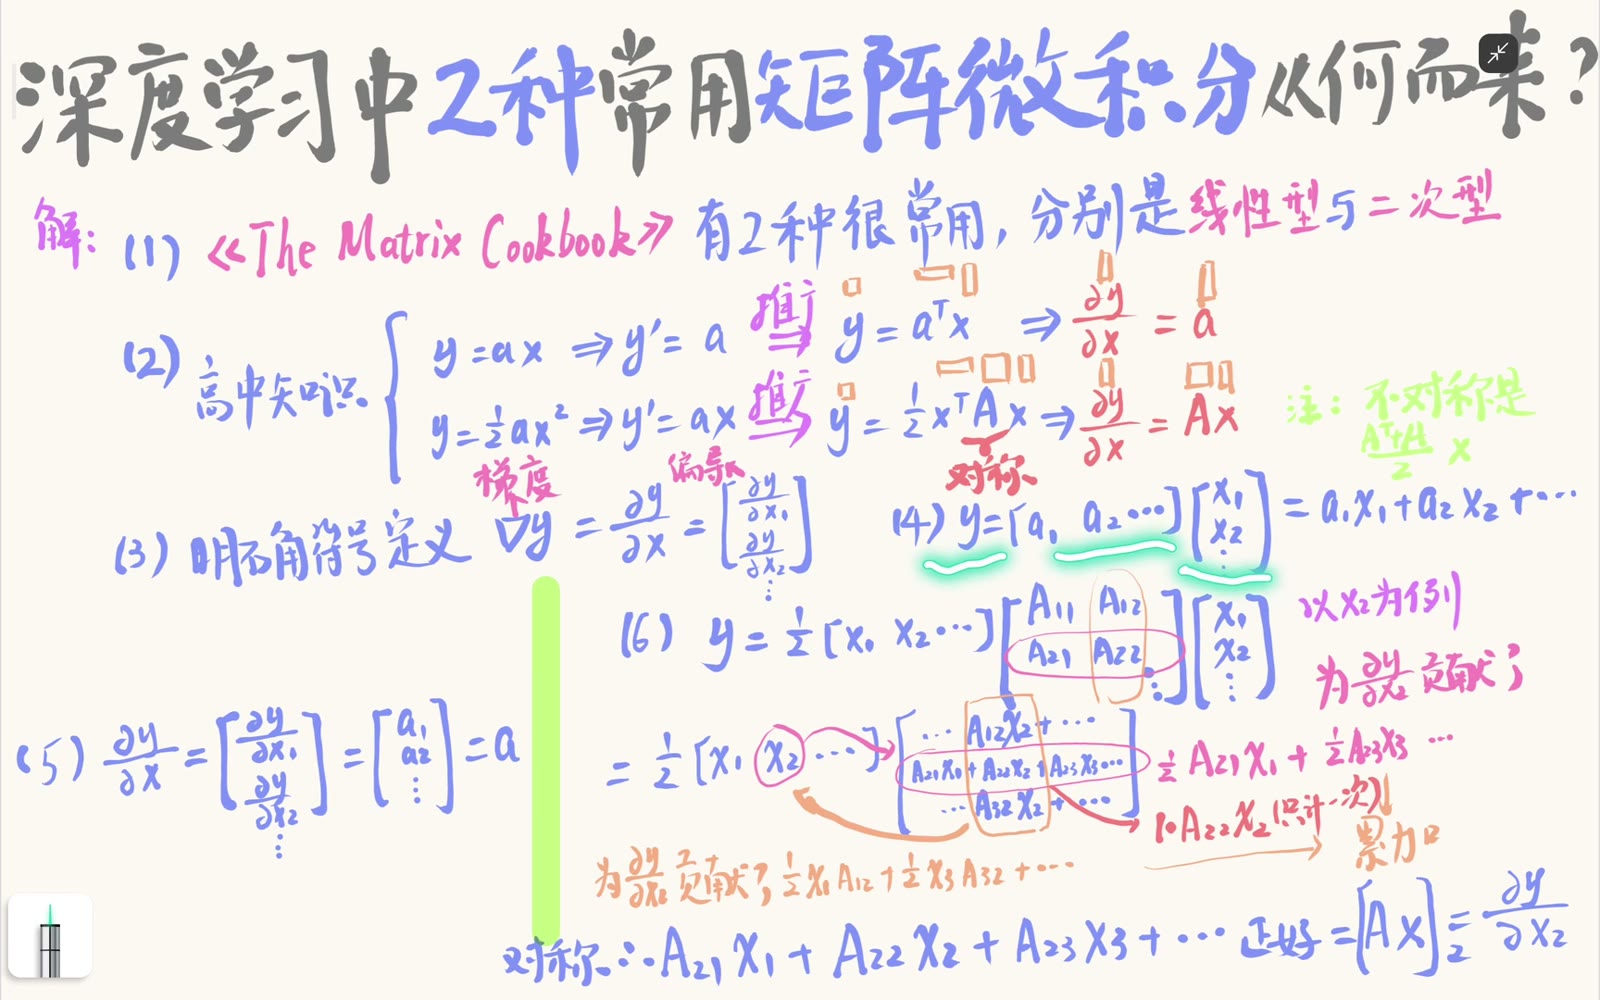 深度学习中2种常用矩阵微积分从何而来?
解: (1) 《The Matrix Cookbook》 有2种很常用, 分别是线性型与二次型
(2) 高中知识 { y=ax ⇒ y'=a 推广⇒ y=aᵀx ⇒ ∂y/∂x = a
y=½ax² ⇒ y'=ax 推广⇒ y=½xᵀAx ⇒ ∂y/∂x = Ax
对称
注: 不对称是 (Aᵀ+A)/2 x
(3) 明确符号定义 ∇y = ∂y/∂x = [∂y/∂x₁ ∂y/∂x₂ ⋮]
梯度
偏导
(4) y=[a₁ a₂ ⋯][x₁ x₂ ⋮] = a₁x₁+a₂x₂+⋯
(5) ∂y/∂x = [∂y/∂x₁ ∂y/∂x₂ ⋮] = [a₁ a₂ ⋮] = a
(6) y=½[x₁ x₂ ⋯][A₁₁ A₁₂ A₂₁ A₂₂ ⋱][x₁ x₂ ⋮]
以x₂为例
为∂y/∂x₂贡献了
= ½[x₁ x₂ ⋯][⋯ A₁₂x₂+⋯
A₂₁x₁+A₂₂x₂+A₂₃x₃⋯
⋯ A₃₂x₂+⋯]
½A₂₁x₁+½A₂₃x₃ ⋯
A₂₂x₂(只计一次)
累加
为∂y/∂x₂贡献了½x₁A₁₂+½x₃A₃₂+⋯
对称∴A₂₁x₁+A₂₂x₂+A₂₃x₃+⋯ 正好=[Ax]₂=∂y/∂x₂